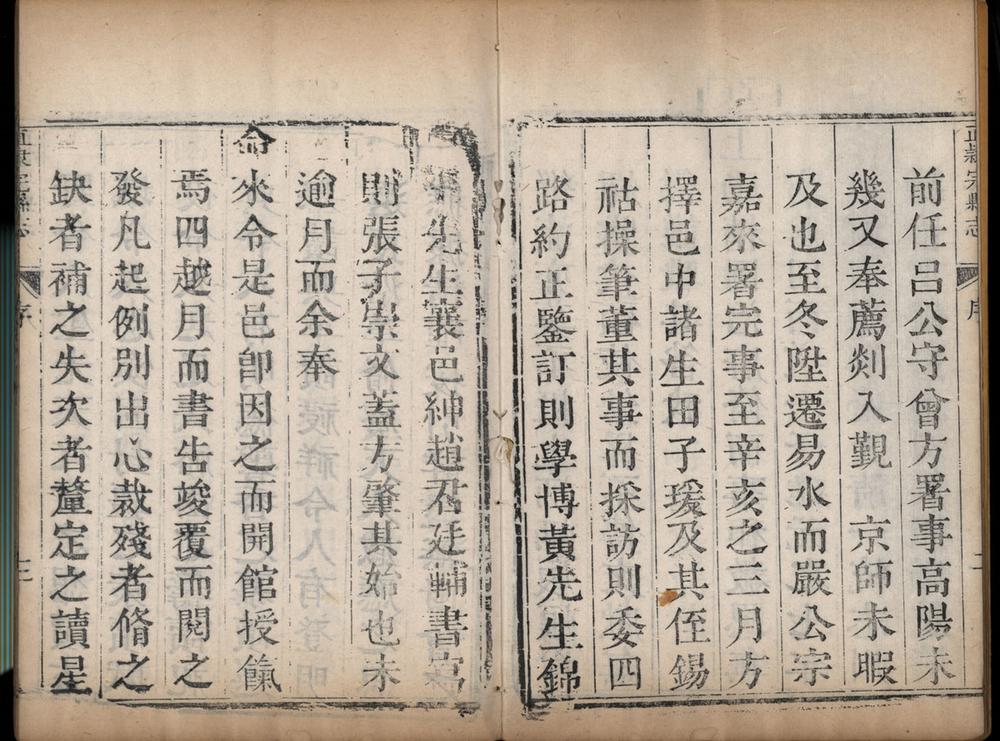 前任呂公守曾方署事高陽未
幾又奉薦剡入覲 京師未暇
及也至冬陞遷易水而嚴公宗
嘉來署完事至辛亥之三月方
擇邑中諸生田子瑗及其侄錫
祜操筆董其事而採訪則委四
路約正鑒訂則學博黃先生錦
先生襄邑紳趙君廷輔書寫
則張子崇文蓋方肇其始也未
逾月而余奉
命來令是邑卽因之而開館授餼
焉四越月而書告竣覆而閱之
發凡起例別出心裁殘者脩之
缺者補之失次者釐定之讀星
縣志
序